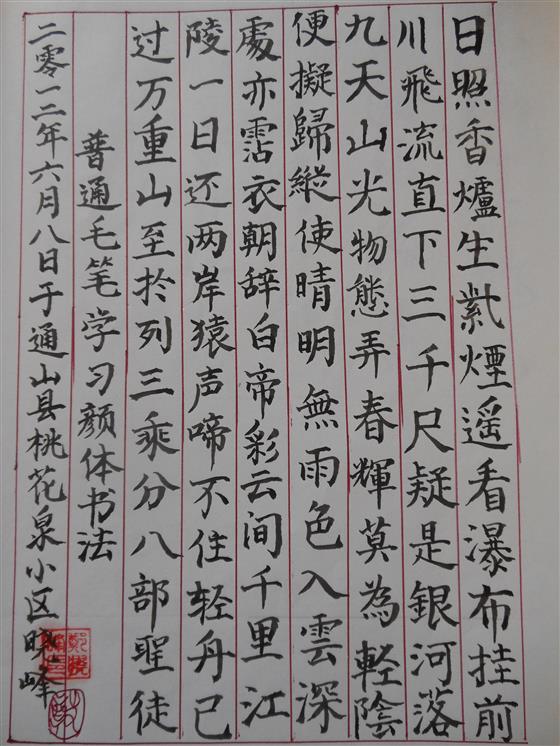 日照香爐生紫煙遥看瀑布挂前
川飛流直下三千尺疑是銀河落
九天山光物態弄春輝莫為輕陰
便擬歸縱使晴明無雨色入雲深
處亦霑衣朝辞白帝彩云间千里江
陵一日还两岸猿声啼不住轻舟已
过万重山至於列三乘分八部聖徒
普通毛笔学习颜体书法
二零一二年六月八日于通山县桃花泉小区晓峰